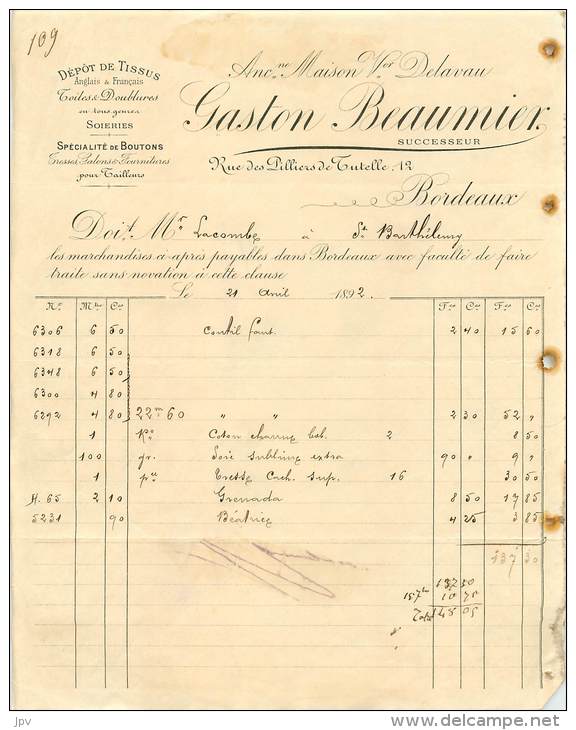 109
DÉPÔT DE TISSUS
Anglais & Français
Toiles & Doublures
en tous genres
SOIERIES
SPÉCIALITÉ DE BOUTONS
Tresses, Galons & Fournitures
pour Tailleurs
Anc.ne Maison V.or Delavau
Gaston Beaumier.
SUCCESSEUR
Rue des Pilliers de Tutelle, 12
Bordeaux
Doit Mr Lacombe à St Barthélemy
les marchandises ci-après payables dans Bordeaux avec faculté de faire
traite sans novation à cette clause
Le 21 avril 1892.
Nos Mtres Ces Frs Ces Frs Ces
6306 6 50 Coutil fant. 2 40 15 60
6318 6 50
6348 6 50
6300 4 80
6292 4 80 22m 60 " " 2 30 52 "
1 Ko Coton 2 8 50
100 gr. Soie sublime extra 90 " 9 "
1 Tresse Cach. sup. 16 30 50
A. 65 2 10 Grenada 8 50 17 85
5231 90 Béatrix 4 25 3 85
137 30
137 30
10 75
Total 148 05
jpv
www.delcampe.net